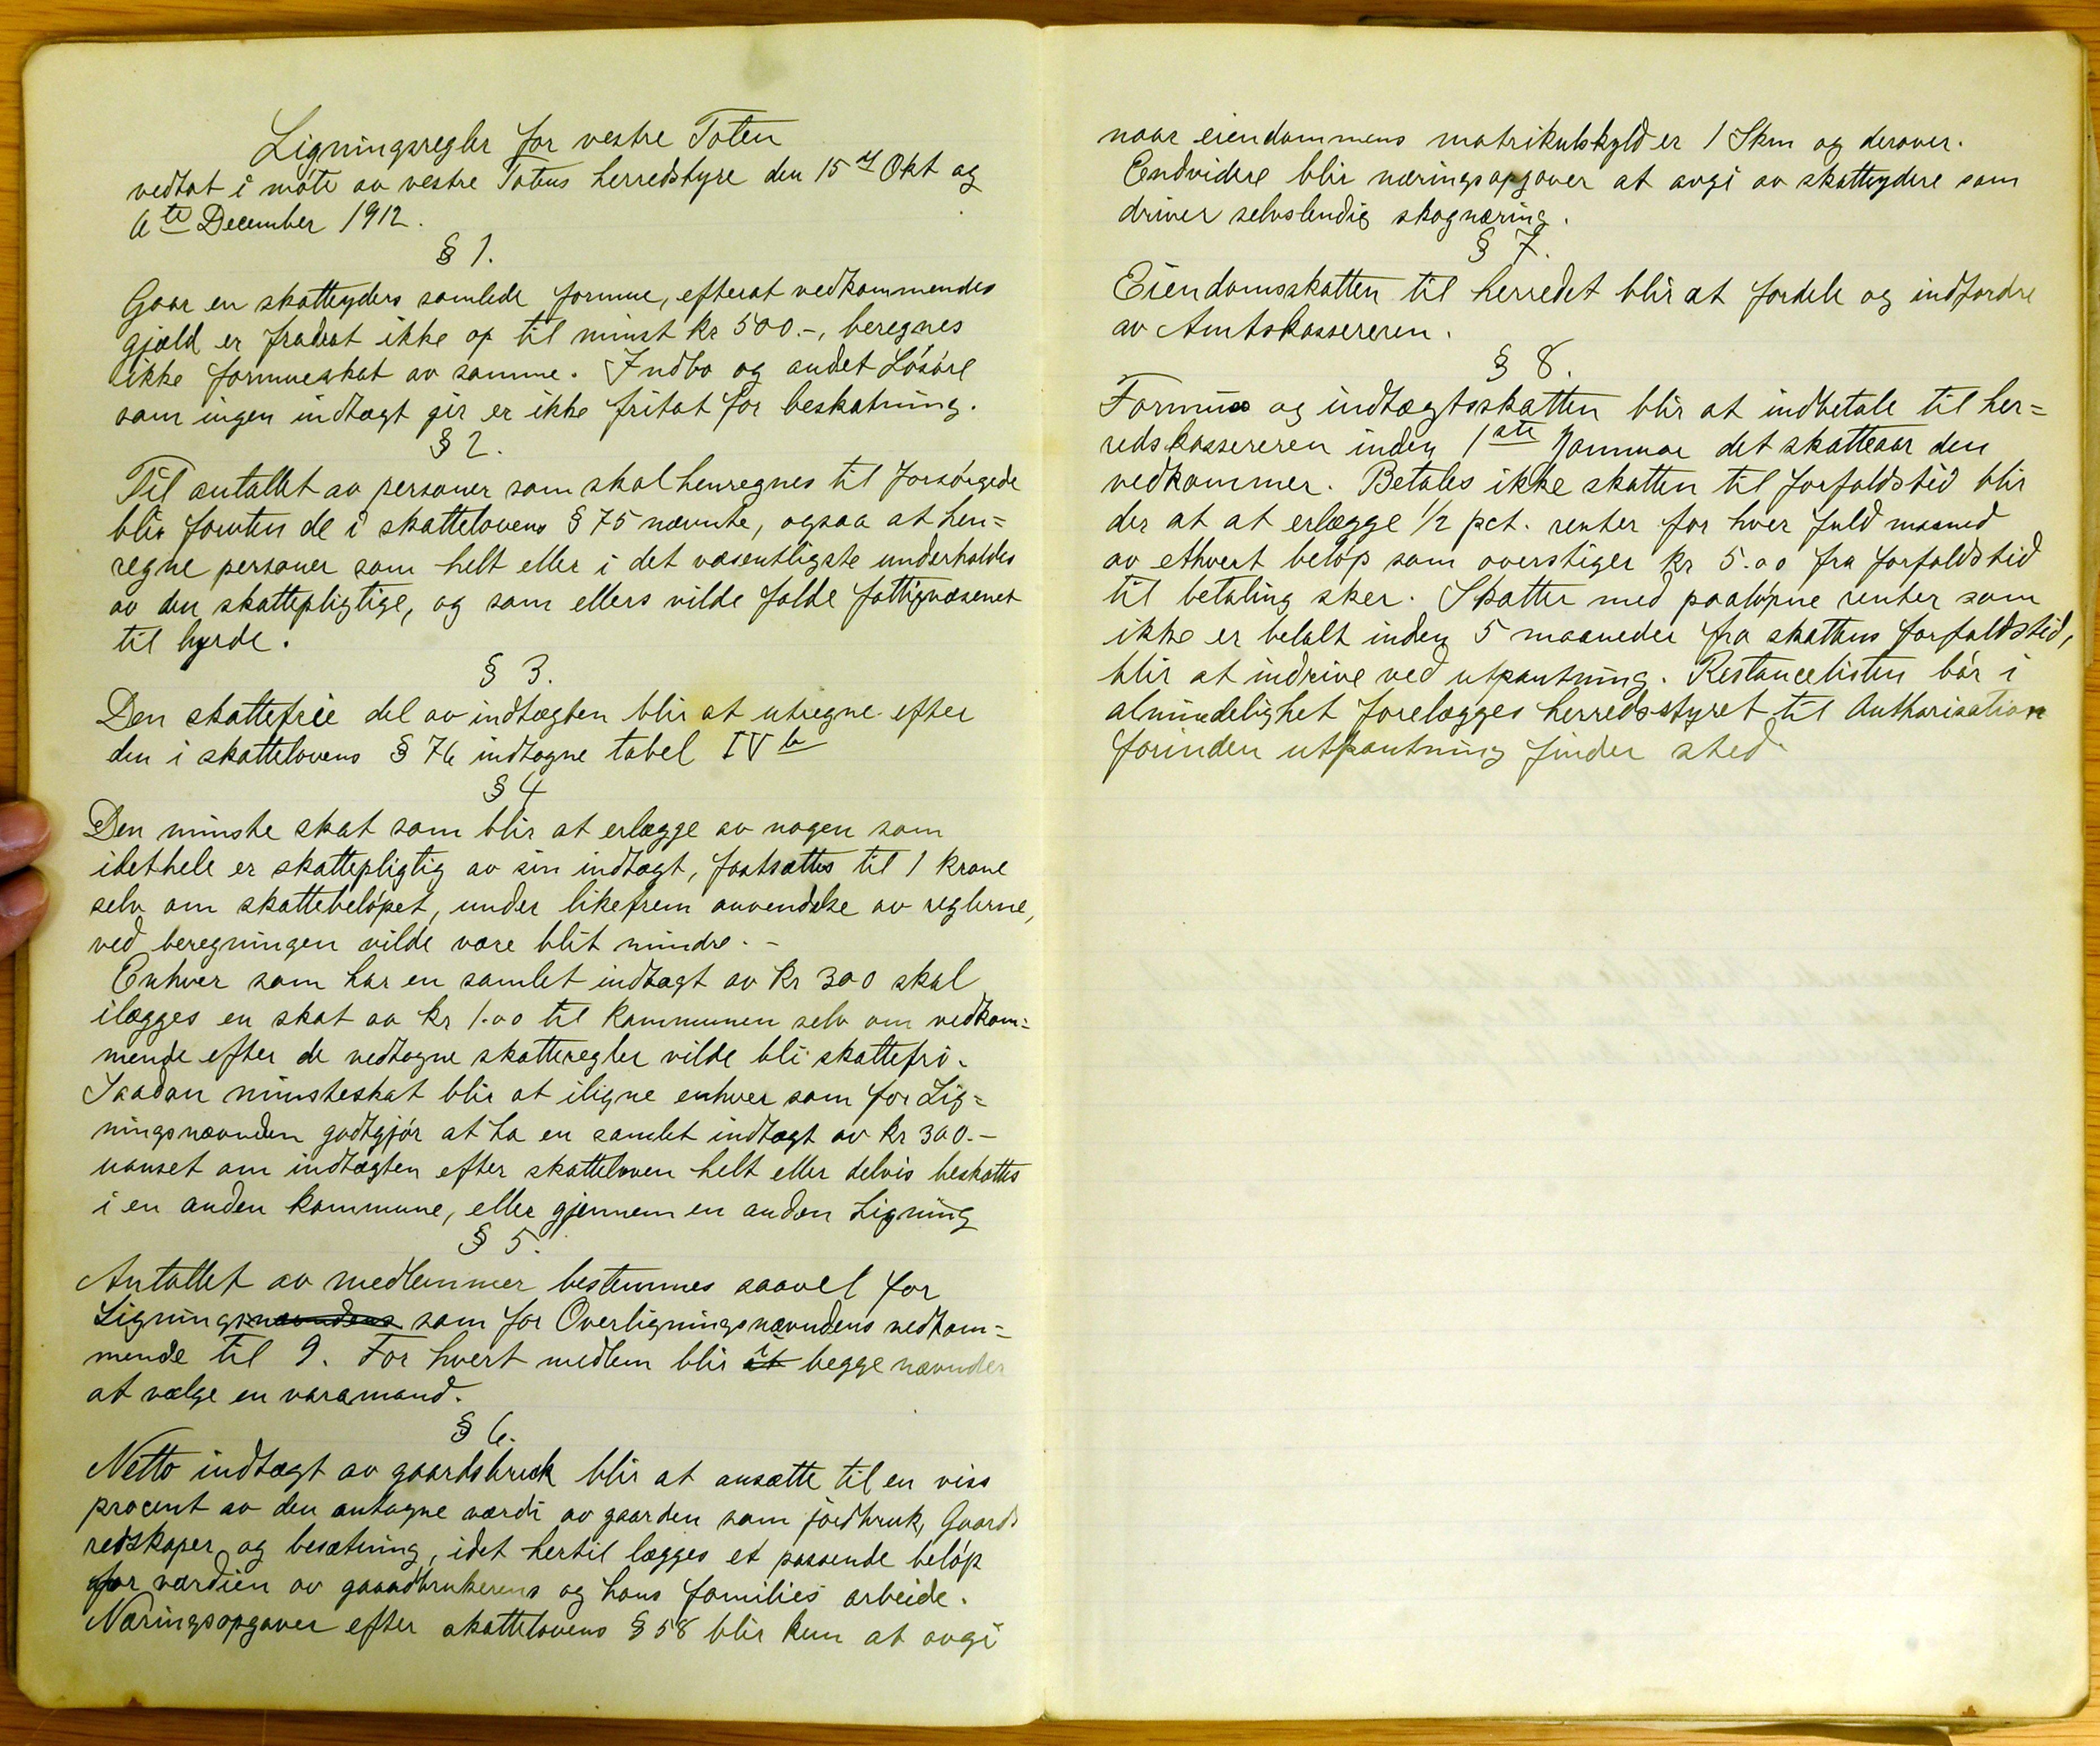 Ligningsregler for vestre Toten
vedtat i möte av vestre Totens herredstyre den 15de Okt og
6te December 1912.
§ 1.
Gaar en skatteyders samlede formue, efterat vedkommendes
gjæld er fradrat ikke op til minst kr 500.-, beregnes
ikke formueskat av samme. Indbo og andet Lösöre
som ingen indtægt gir er ikke fritat for beskatning.
§ 2.
Til antallet av personer som skal henregnes til forsörgede
blir foruten de i skattelovens § 75 nævnte, ogsaa at hen=
regne personer som helt eller i det væsentligste underholdes
av den skattepligtige, og som ellers vilde falde fattigvæsenet
til byrde.
§ 3.
Den skattefrie del av indtægten blir at utregne efter
den i skattelovens § 76 indtagne tabel IV b
§ 4
Den minste skat som blir at erlægge av nogen som
idethele er skattepligtig av sin indtægt, fastsættes til 1 krone
selv om skattebelöpet, under likefrem anvendelse av reglerne,
ved beregningen vilde være blit mindre. -
Enhver som har en samlet indtægt av kr 300 skal
ilægges en skat av kr 1.00 til kommunen selv om vedkom=
mende efter de vedtagne skatteregler vilde bli skattefri.
Saadan minsteskat blir at iligne enhver som for Lig=
ningsnævnden godtgjör at ha en samlet indtægt av kr 300.-
uanset om indtægten efter skatteloven helt eller delvis beskattes
i en anden kommune, eller gjennem en anden Ligning
§ 5.
Antallet av medlemmer bestemmes saavel for
Ligningsnævndens som for Overligningsnævndens vedkom=
mende til 9. For hvert medlem blir at i begge nævnder
at vælge en varamand.
§ 6.
Netto indtægt av gaardsbruk blir at ansætte til en viss
procent av den antagne værdi av gaarden som jordbruk, Gaards
redskaper og besætning, idet hertil lægges et passende belöp
for værdien av gaardbrukerens og hans families arbeide.
Næringsopgaver efter skattelovens § 58 blir kun at avgi
naar eiendommens matrikulskyld er 1 Skm og derover.
Endvidere blir næringsopgaver at avgi av skatteydere som
driver selvstendig skognæring.
§ 7.
Eiendomsskatten til herredet blir at fordele og indfordre
av Amtskassereren.
§ 8.
Formues og indtægtsskatten blir at indbetale til her=
redskassereren inden 1ste Januar det skatteaar den
vedkommer. Betales ikke skatten til forfaldstid blir
der at at erlægge 1/2 pct. renter for hver fuld maaned
av ethvert belöp som overstiger kr 5.00 fra forfaldstid
til betaling sker. Skatter med paalöpne renter som
ikke er betalt inden 5 maaneder fra skattens forfaldstid,
blir at indrive ved utpantning. Restancelisten bör i
almindelighet forelægges herredsstyret til Authorisation
forinden utpantning finder sted.